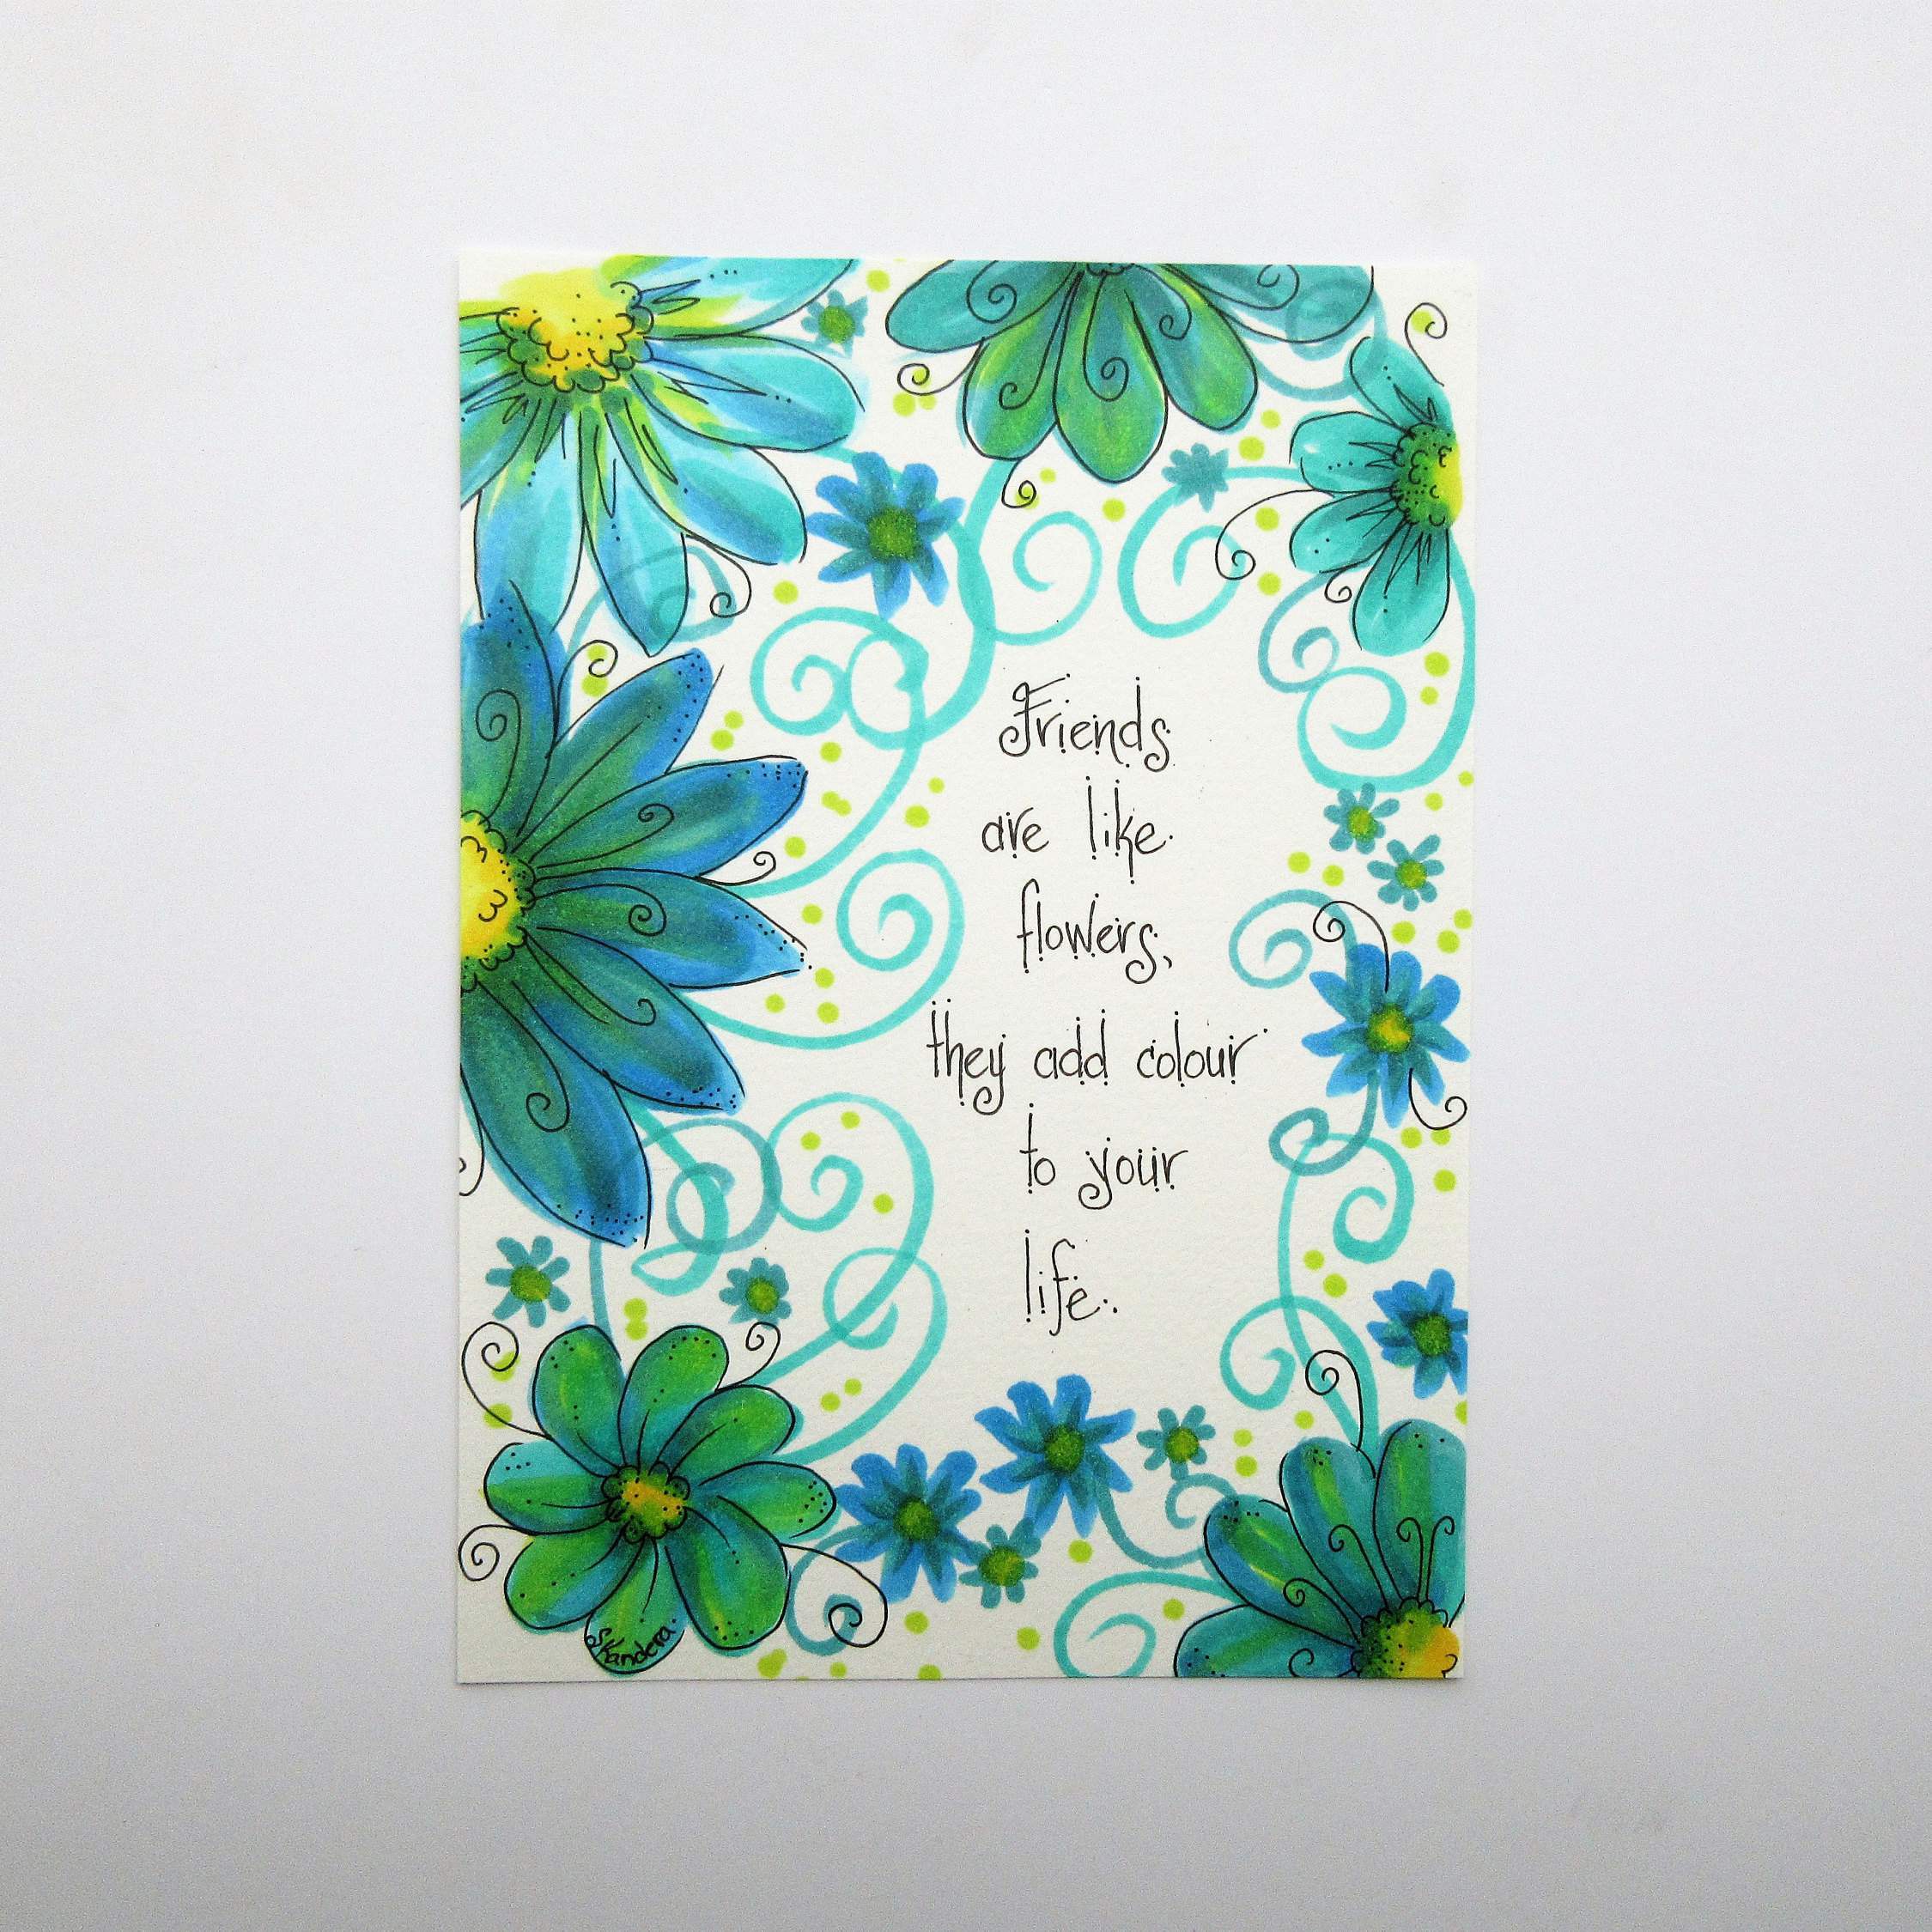 Friends
are like
flowers,
they add colour
to your
life.
SKandera